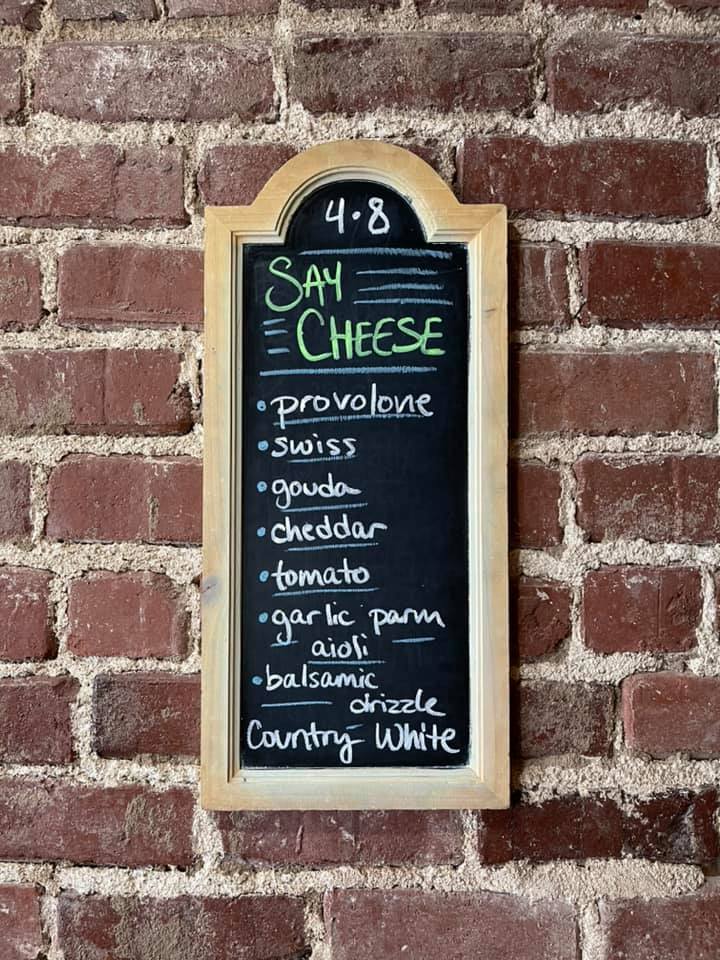 4·8
SAY
CHEESE
• provolone
• swiss
• gouda
• cheddar
• tomato
• garlic parm
aioli
• balsamic
drizzle
Country White